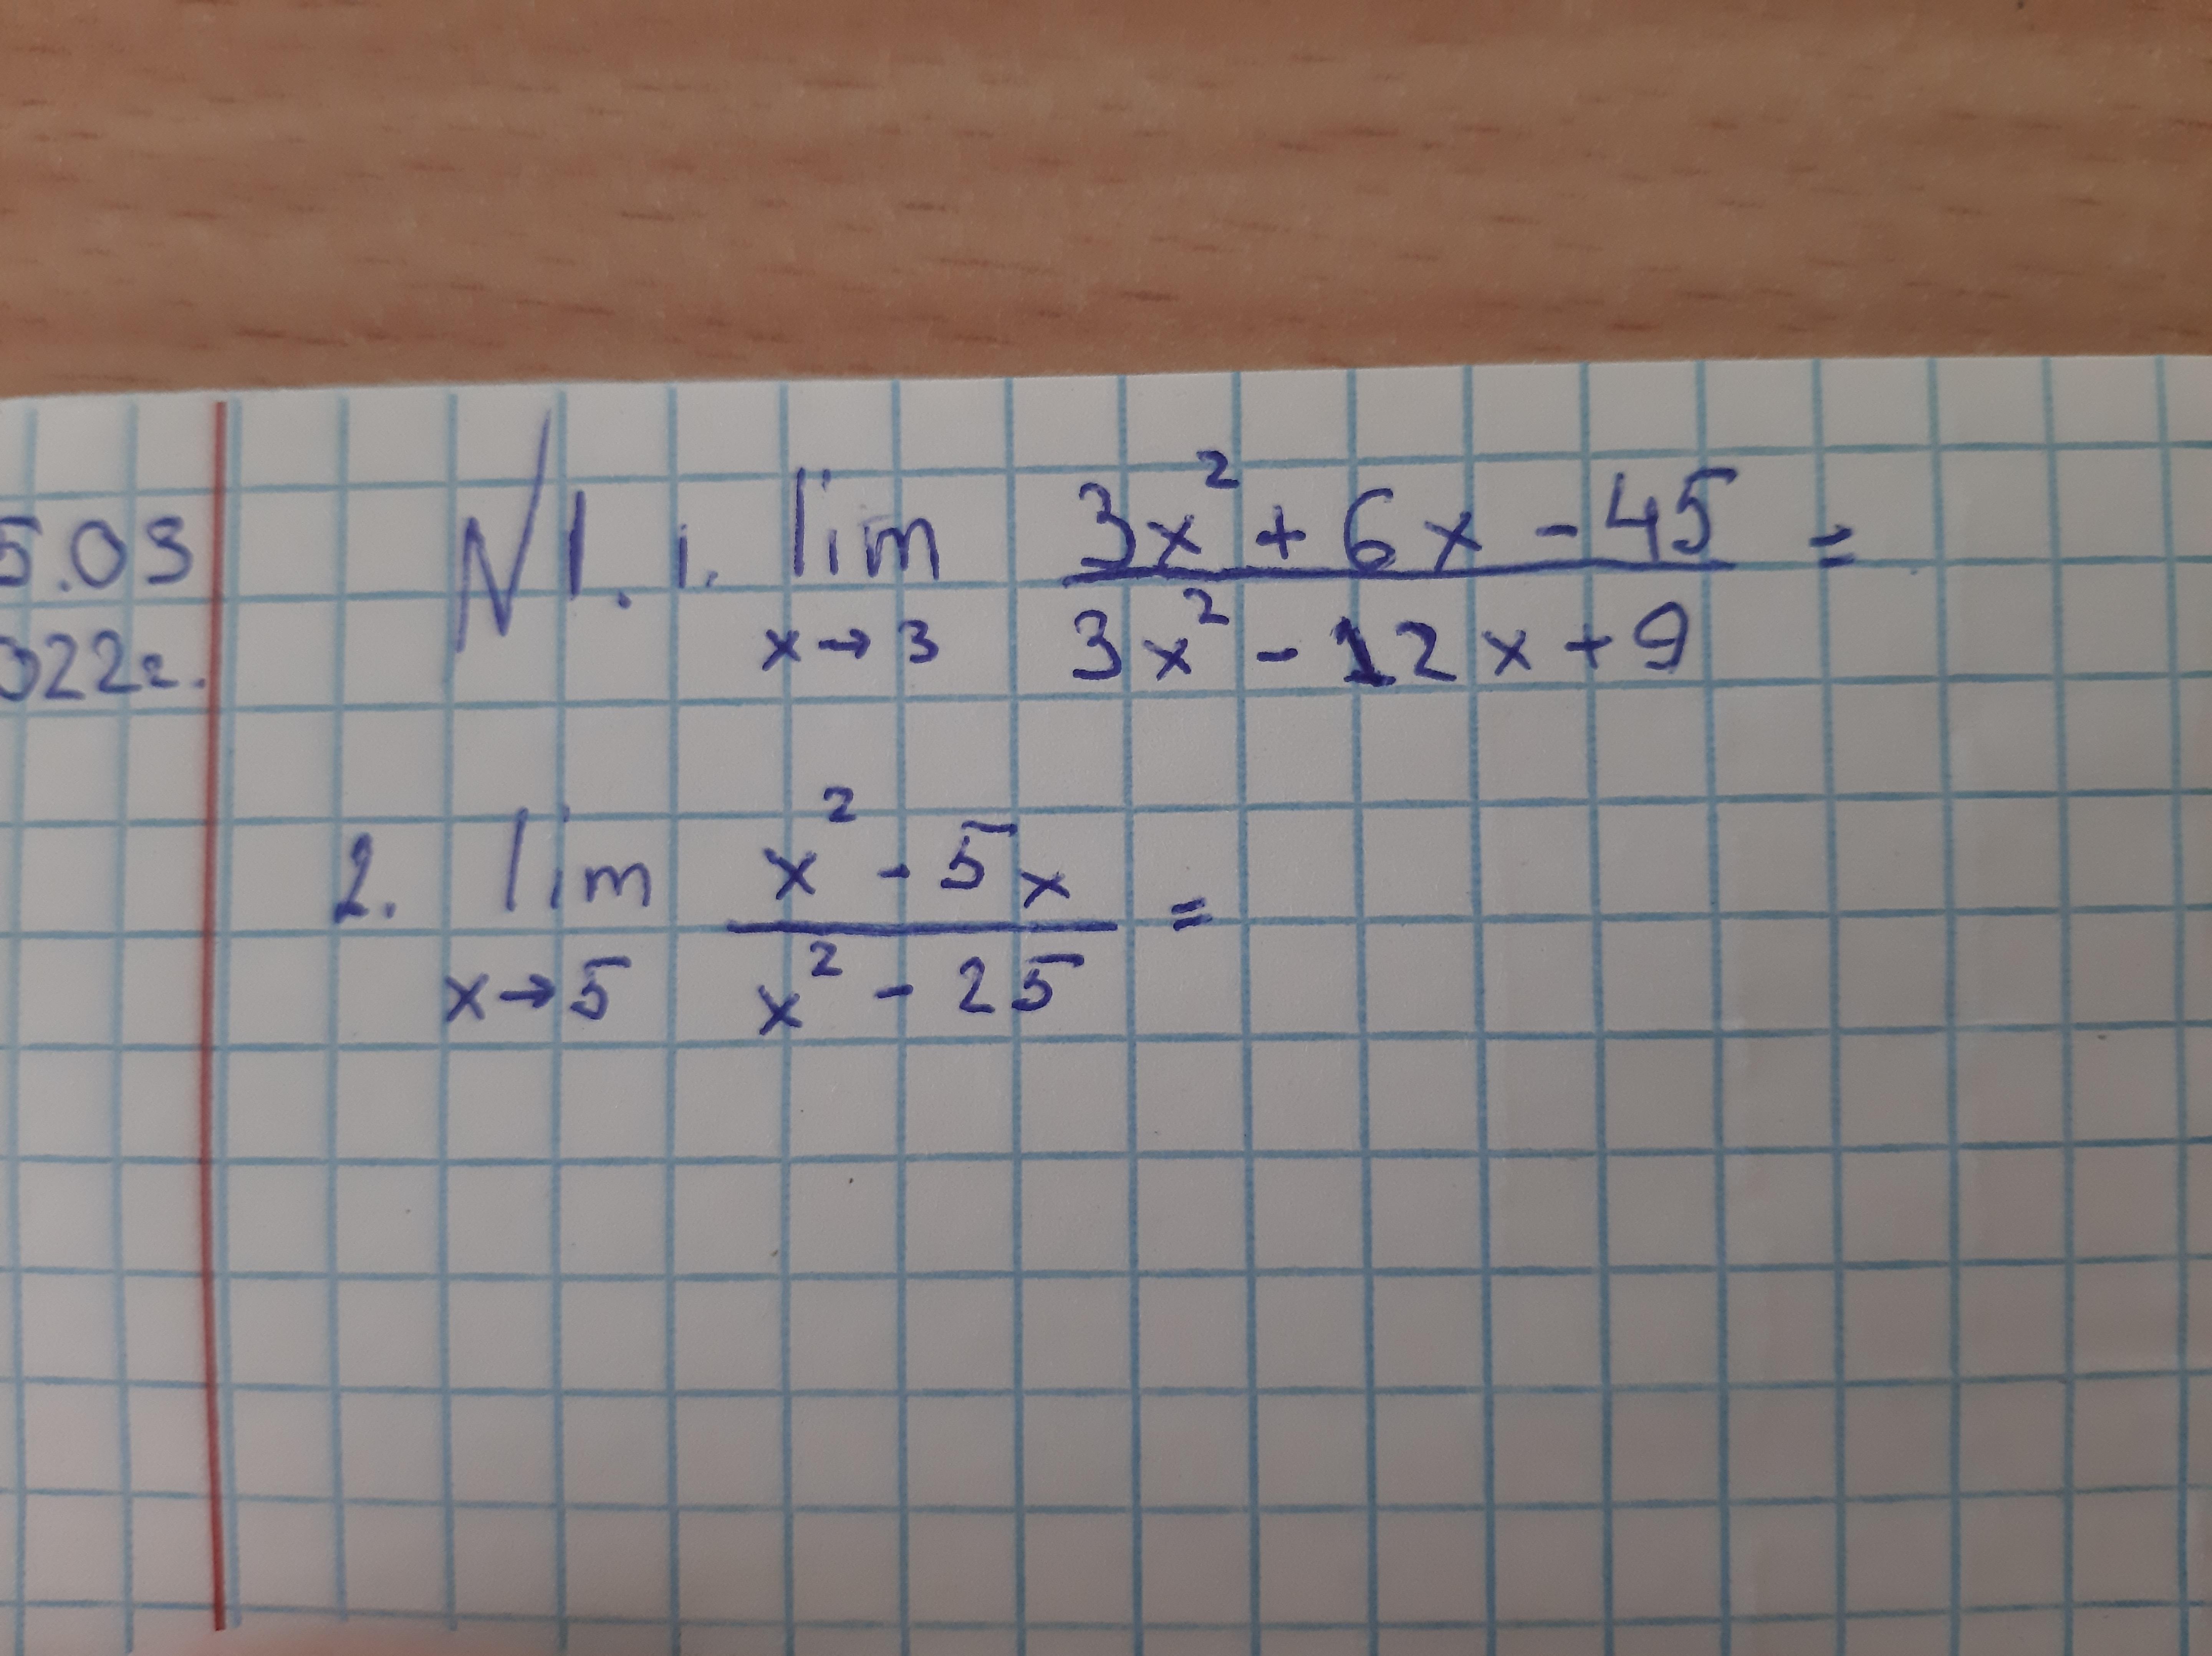 5.03
022г.
№1. 1. lim 3x² + 6x - 45 =
x→3 3x² - 12x + 9
2. lim x² - 5x =
x→5 x² - 25